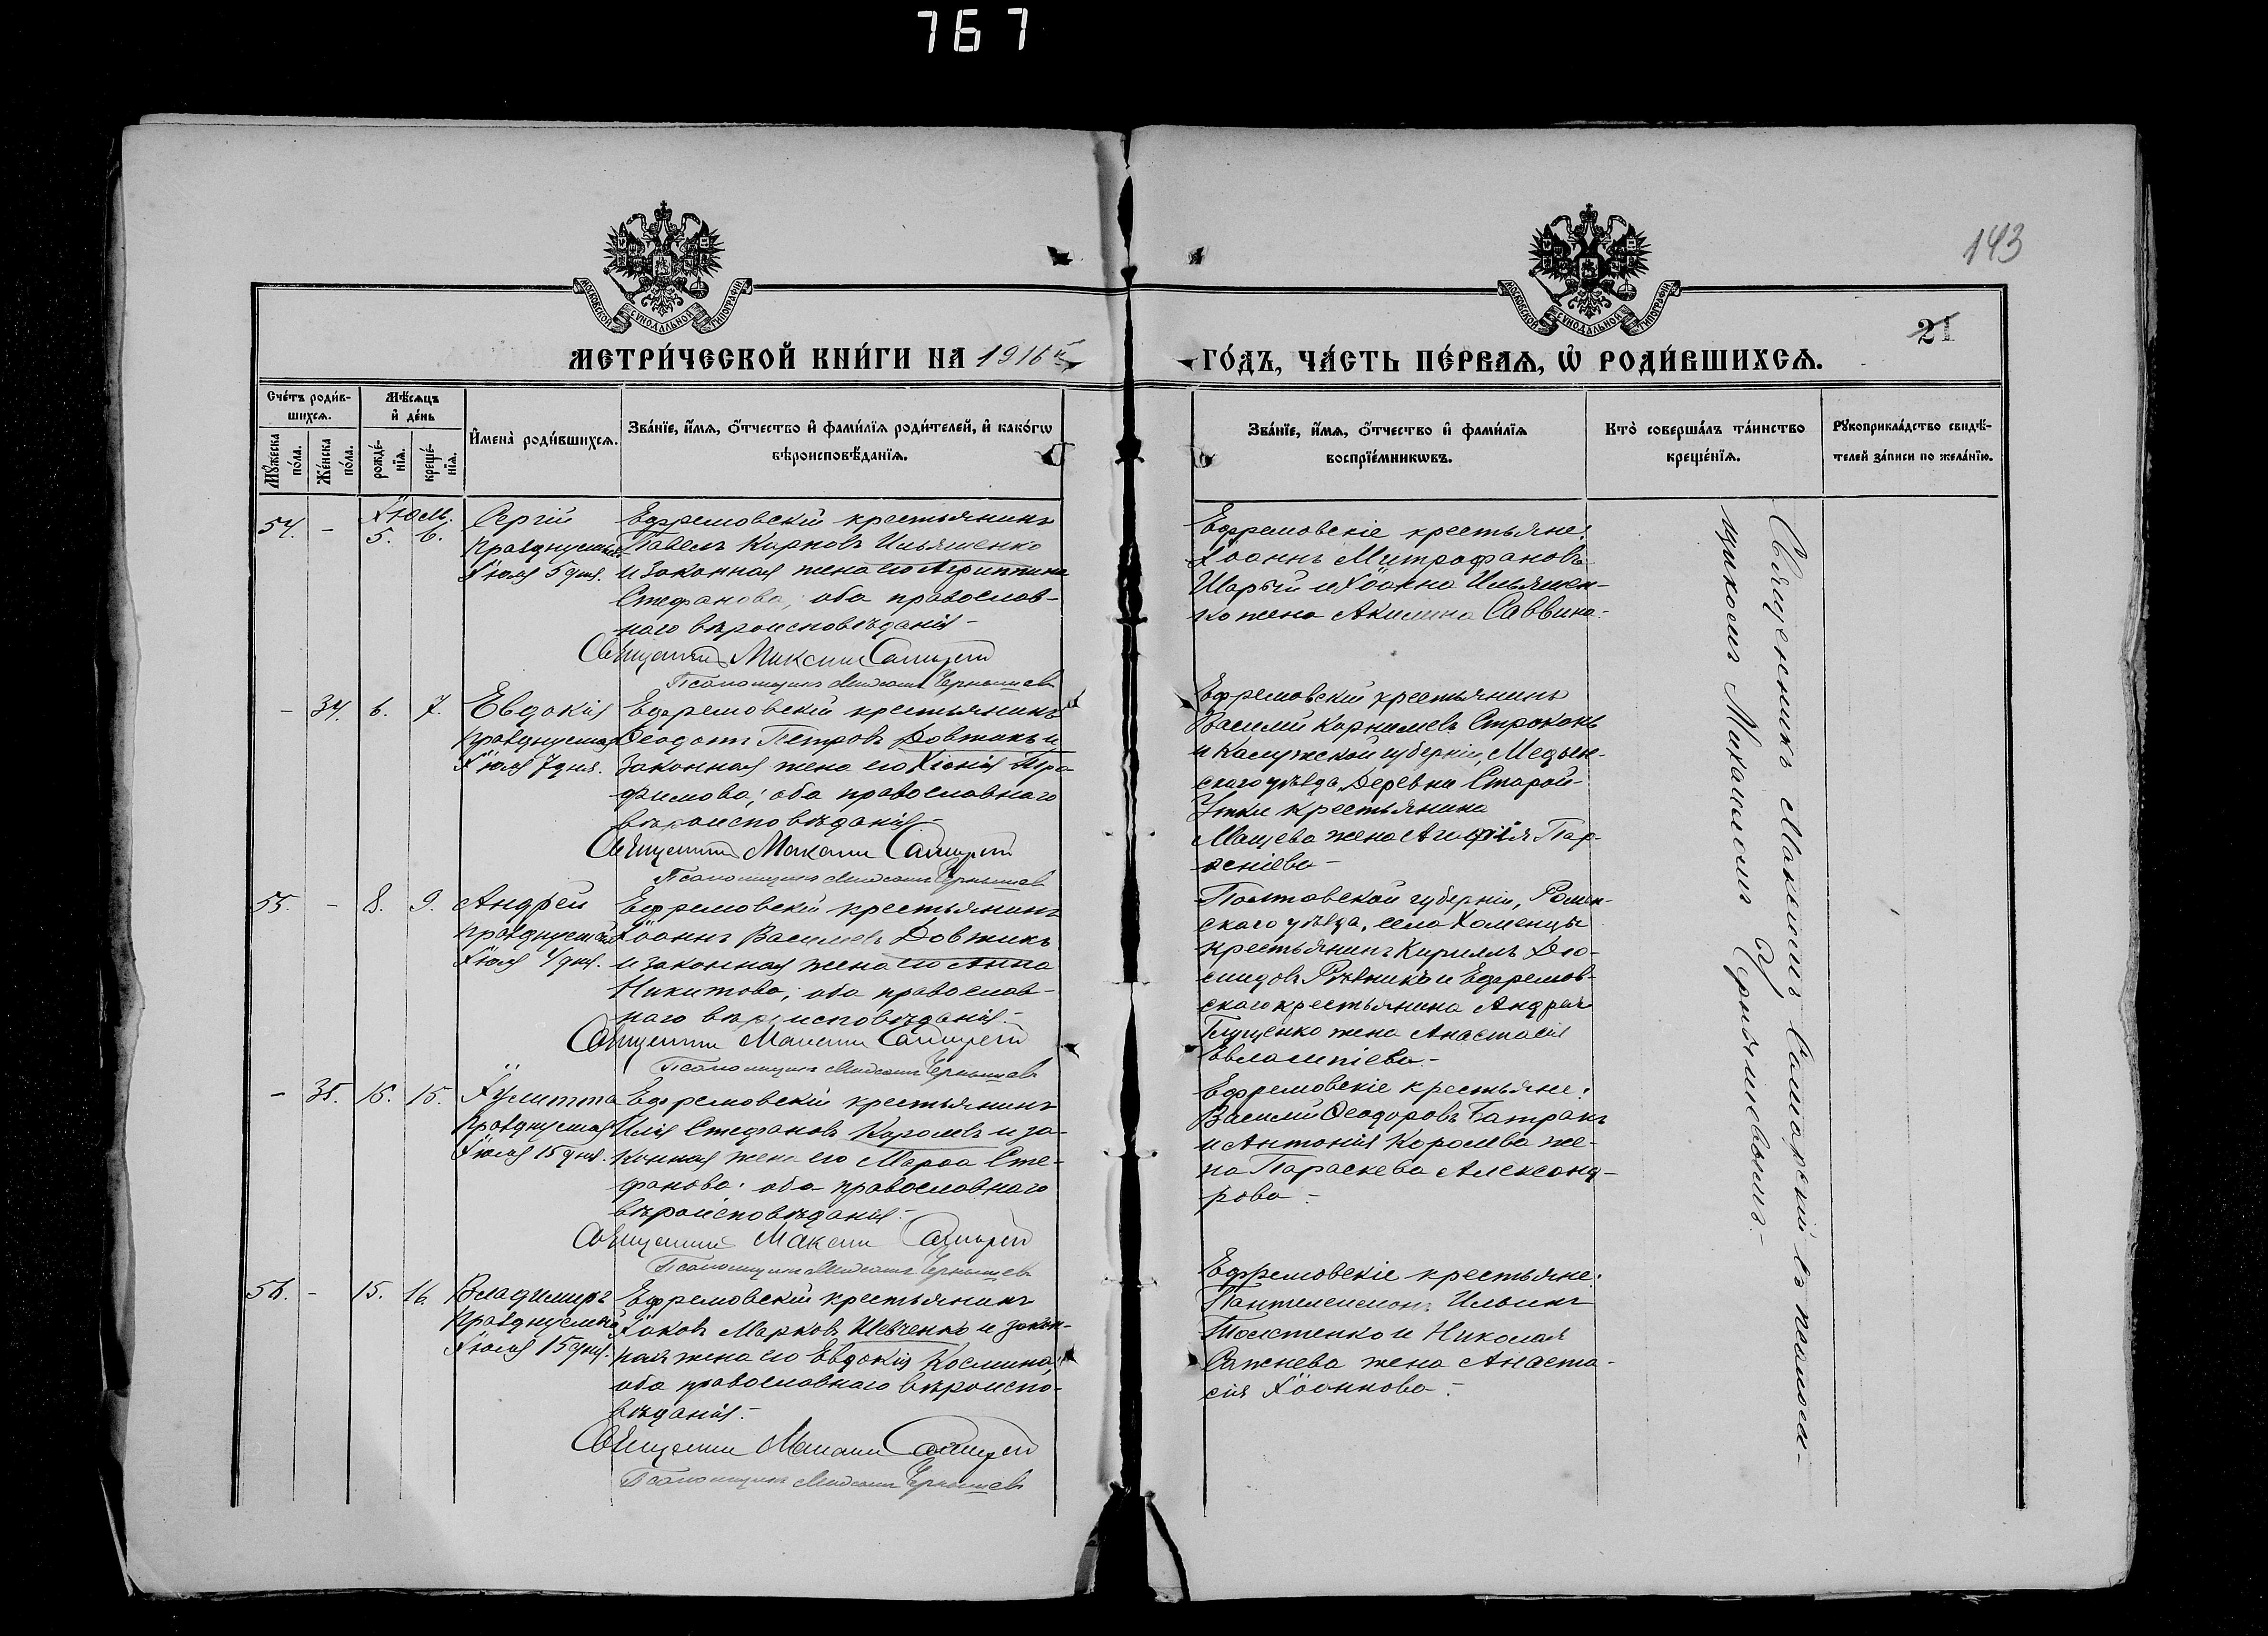 767
143
21
МОСКОВСКОЙ СУНОДАЛЬНОЙ ТИПОГРАФІИ
МОСКОВСКОЙ СУНОДАЛЬНОЙ ТИПОГРАФІИ
МЕТРИ́ЧЕСКОЙ КНИ́ГИ НА 1916й
ГО́ДЪ, ЧА́СТЬ ПЕ́РВАѦ, Ѡ РОДИ́ВШИХСѦ.
Сче́тъ роди́в-
шихсѧ.
Мꙋ́жеска
по́ла.
Же́нска
по́ла.
Мѣ́сѧцъ
и де́нь
рожде́-
нїѧ.
креще́-
нїѧ.
Имена̀ роди́вшихсѧ.
Зва́нїе, и́мѧ, о́тчество и фами́лїѧ роди́телей, и како́гѡ
вѣроисповѣ́данїѧ.
Зва́нїе, и́мѧ, о́тчество и фами́лїѧ
воспрїе́мникѡвъ.
Кто̀ соверша́лъ та́инство
креще́нїѧ.
Рꙋкоприкла́дство свидѣ́-
телей за́писи по жела́нїю.
Іюль.
54. - 5. 6.
Сергій
празднуемый
Іюля 5 дня.
Ефремовскій крестьянинъ
Павелъ Карповъ Ильяшенко
и законная жена его Агриппина
Стефанова; оба православ-
наго вѣроисповѣданія -
Священникъ Максимъ Самарскій
Псаломщикъ Михаилъ Чернышевъ
Ефремовскіе крестьяне:
Іоаннъ Митрофановъ
Шарый и Іоанна Ильяшен-
ко жена Акилина Саввина.
- 34. 6. 7.
Евдокія
празднуемая
Іюля 7 дня.
Ефремовскій крестьянинъ
Феодотъ Петровъ Довжикъ и
законная жена его Хіонія Тро-
фимова; оба православнаго
вѣроисповѣданія -
Священникъ Максимъ Самарскій
Псаломщикъ Михаилъ Чернышевъ
Ефремовскій крестьянинъ
Василій Корнилевъ Строконь
и Калужской губерніи, Медын-
скаго уѣзда, деревни Старой
Утки крестьянина
жена Агафія Пар-
феніева -
55. - 8. 9.
Андрей
празднуемый
Іюля 4 дня.
Ефремовскій крестьянинъ
Іоаннъ Василіевъ Довжикъ
и законная жена его Анна
Никитова; оба православ-
наго вѣроисповѣданія. -
Священникъ Максимъ Самарскій
Псаломщикъ Михаилъ Чернышевъ
Полтавской губерніи, Ромен-
скаго уѣзда, села Хоменцы
крестьянинъ Кириллъ Дio-
мидовъ и Ефремов-
скаго крестьянина Андрея
Глущенко жена Анастасія
Евлампіева. -
- 35. 15. 15.
Іулитта
празднуемая
Іюля 15 дня.
Ефремовскій крестьянинъ
Илія Стефановъ Королевъ и за-
конная жена его Марфа Сте-
фанова; оба православнаго
вѣроисповѣданія. -
Священникъ Максимъ Самарскій
Псаломщикъ Михаилъ Чернышевъ
Ефремовскіе крестьяне:
Василій Феодоровъ Батракъ
и Антонія Королева же-
на Параскева Александ-
рова -
56. - 15. 16.
Владимиръ
празднуемый
Іюля 15 дня.
Ефремовскій крестьянинъ
Іаковъ Марковъ Шевченко и закон-
ная жена его Евдокія Космина;
оба православнаго вѣроиспо-
вѣданія. -
Священникъ Максимъ Самарскій
Псаломщикъ Михаилъ Чернышевъ
Ефремовскіе крестьяне:
Пантелеимонъ Ильинъ
Толстенко и Николая
Сажнева жена Анаста-
сія Іоаннова. -
Священникъ Максимъ Самарскій съ псалом-
щикомъ Михаиломъ Чернышевымъ. -